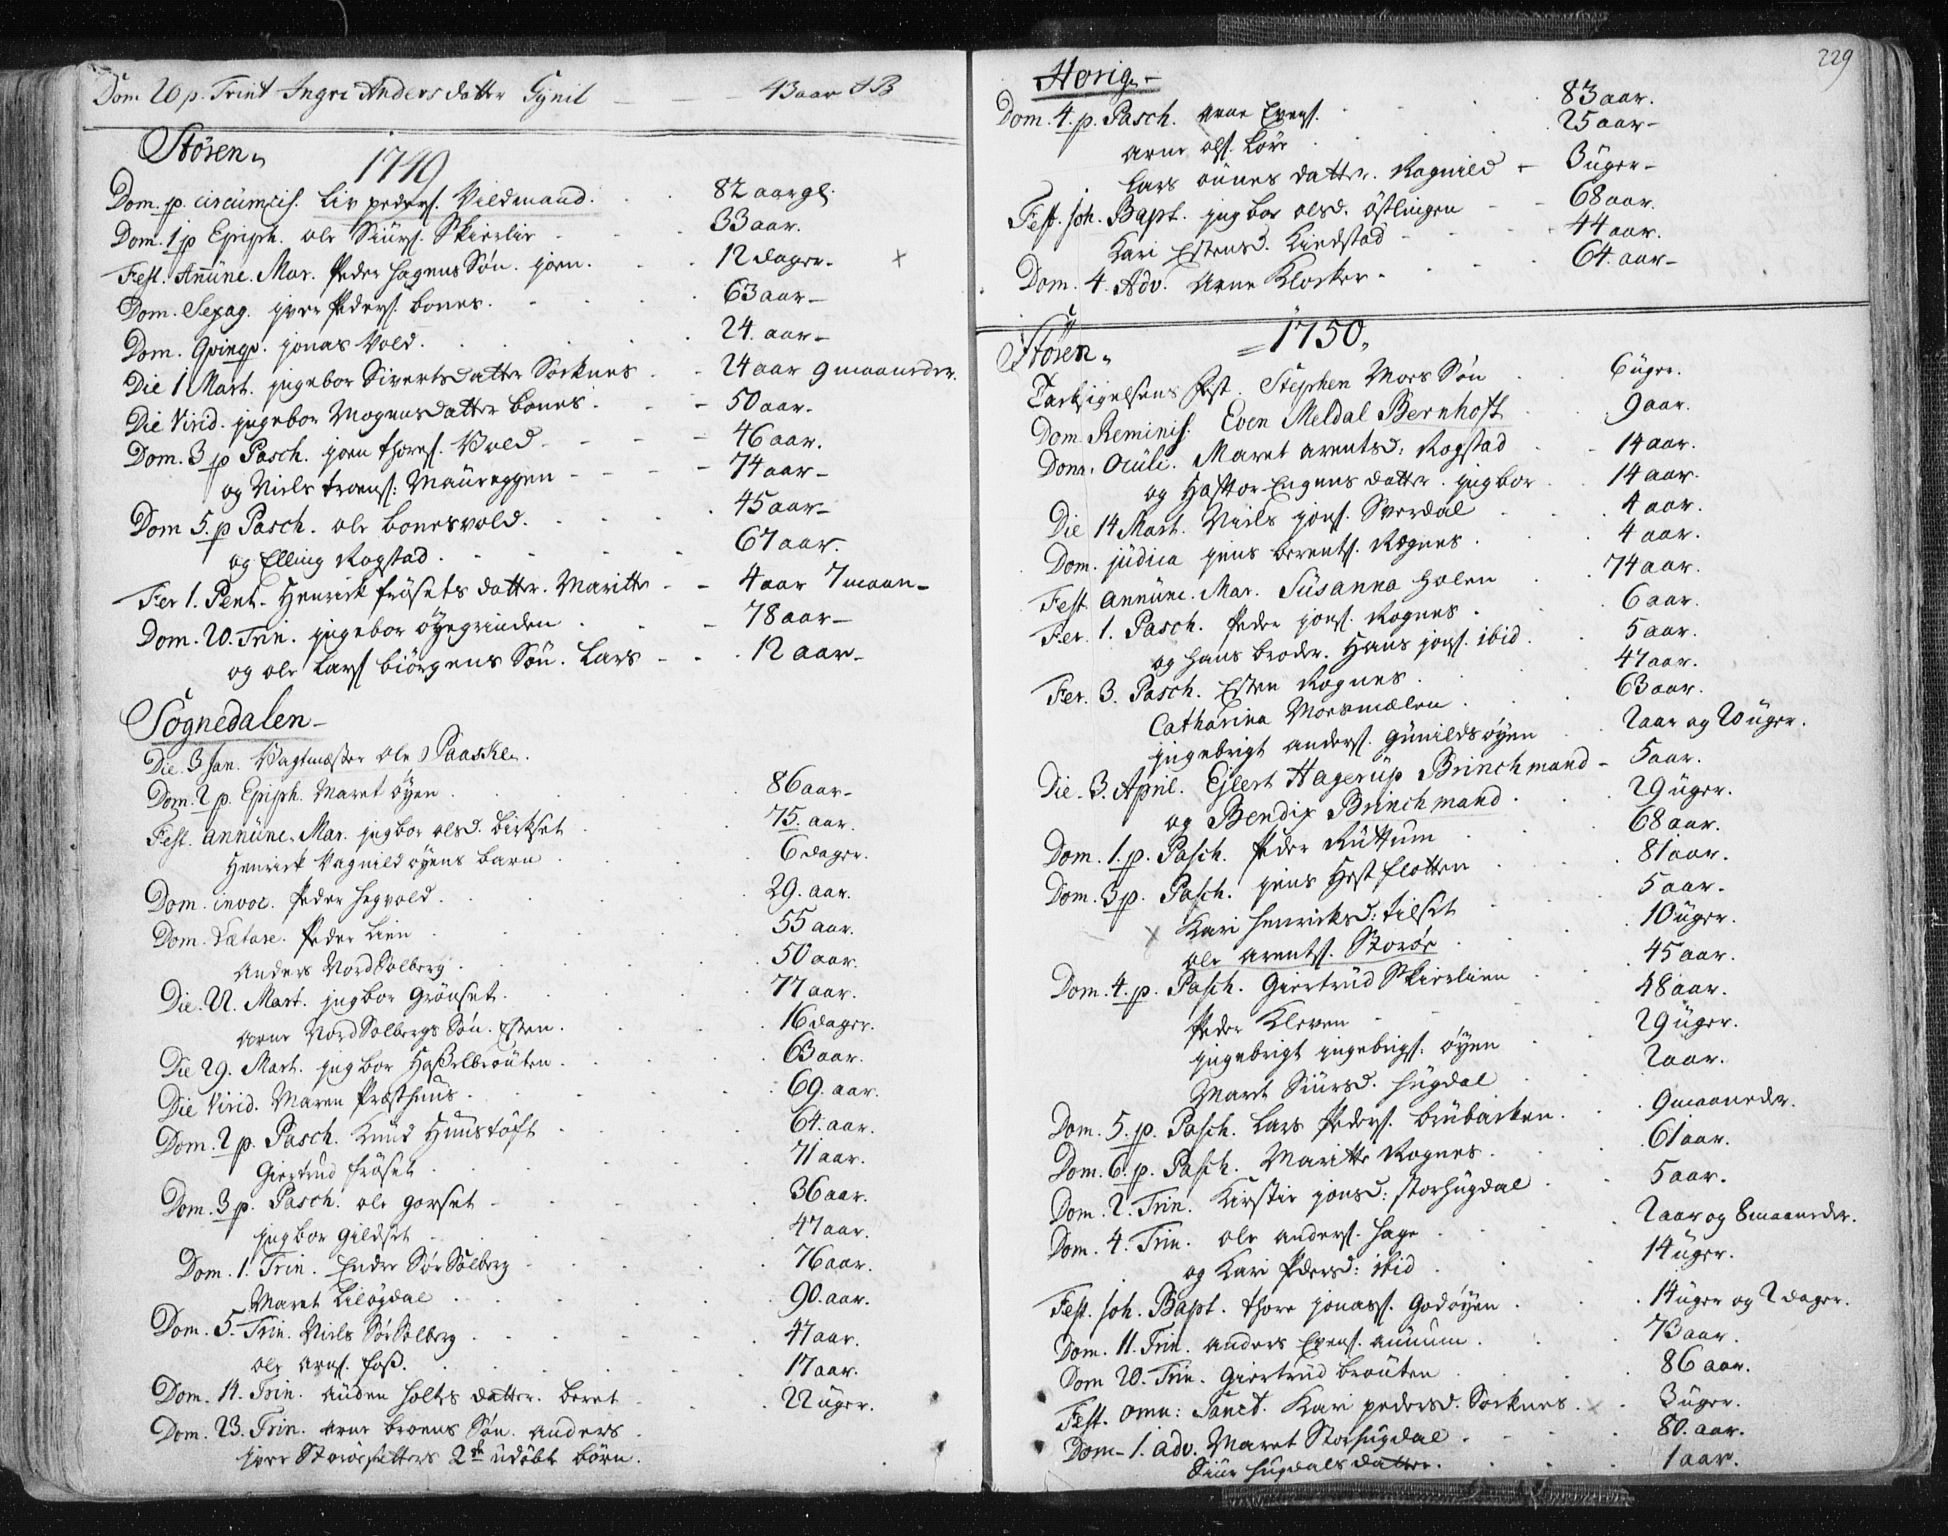 Dom. 20 p. Trint Ingri Anders datter Gynil — — 43 aar
Stören.
1749
Dom. p. circumcis. Liv peders. Vildmand. 82 aar gl.
Dom. 1 p Epiph. ole Siurs. Skierlie 33 aar.
Fest. Annunc. Mar. Peder hagens Sön. joen. 12 dager.
Dom. Sexag. iver Peders. bones. 63 aar
Dom. Qvinqv. jonas Vold. 24. aar
Die 1 Mart. jngebor Siverts datter Sorknes 24 aar 9 maaneder.
Die Virid. jngebor Mogens datter bones. 50 aar.
Dom. 3 p Pasch. joen thores. Vold 46 aar.
og Niels troens: Maureggen 74 aar
Dom 5. p Pasch. ole bonesvold. 45 aar
og Elling Rogstad. 67 aar.
Fer 1. Pent. Henrick frösets datter. Maritte 4 aar 7 maan
Dom. 20. Trin. jngebor öyegrinden 78 aar
og ole Lars biörgens Sön. Lars 12 aar
Sognedalen
Die. 3 Jan. Vagtmæster ole Paaske.
Dom. 2 p. Epiph. Maret öyen 86 aar
Fest. annunc. Mar. jngbor olsd. birkset 75. aar.
Henrick Vagnild öyens barn 6 dager.
Dom. invoc. Peder hegvold. 29. aar.
Dom. Lætare. Peder Lien 55 aar.
Anders Nord Solberg 50 aar.
Die. 22. Mart. jngbor Grönset. 77 aar.
Arne Nord Solbergs Sön. Esten. 16 dager.
Die 29. Mart. jngbor Hasselbrouten. 63 aar.
Die Virid. Maren Præsthuus. 69. aar.
Dom. 2 p. Pasch. Knud Hunstöft 64. aar.
Giertrud fröset. 71 aar.
Dom. 3 p. Pasch. ole gorset 36 aar.
jngbor Gildset 47 aar.
Dom. 1. Trin. Ender Sör Solberg 76 aar.
Maret Lilögdal 90. aar.
Dom. 5. Trin. Niels Sör Solberg 47 aar.
ole arns. foss. 17 aar.
Dom. 14. Trin. auden holts datter. beret 22 uger.
Dom. 23. Trin. arne broens Sön. anders
iver Storöesetters 2de udöbt börn.
229
Horig
Dom. 4. p. Pasch. Arne Evens. 83 aar.
Arne ols. Löre 25 aar
Lars ounes datter. Ragnild 3 uger
Fest. Joh. Bapt. jngbor olsd. östlingen 68 aar.
Kari Estensd. Kindstad 44 aar.
Dom. 4. Adv. Arne Klocker 64. aar
Stören.
1750.
Tacksigelsens Fest. Stephen Moes Sön 6 uger.
Dom Reminis. Even Meldal Bernhoft 9 aar.
Dom. Oculi. Maret arentsd: Rogstad 14 aar.
og Hastor Engens datter. jngbor 14 aar.
Die 14 Mart. Niels jons. Sverdal 4 aar.
Dom. judica jens berents. Rognes. 4 aar.
Fest annunc. Mar. Susanna holen 74 aar.
Fer. 1. Pasch. Peder jons. Rognes. 6 aar.
og hans broder. Hans jons. ibid. 5 aar.
Fer. 3. Pasch. Esten Rognes. 47 aar.
Catharina Moesmælen 63 aar.
jngebrigt anders. Gunilds öyen 2 aar og 20 uger.
Die. 3. April. Ejlert Hagerup Brinchmand 5 aar.
og Bendix Brinchmand. 29 uger.
Dom. 1. p. Pasch. Peder Ruttum 68 aar.
Dom. 3 p. Pasch. jens Hestflotten 81 aar.
Kari henricksd: tilset 5 aar.
ole arents. Storöe 10 uger.
Dom. 4. p. Pasch. Giertrud Skierlien 45 aar.
Peder Kleven 48 aar.
jngebrigt jngebrigs: öyen 29 uger.
Maret Siursd. hugdal 2 aar.
Dom. 5. p. Pasch. Lars Peders. brubacken. 9 maaneder.
Dom. 6. p. Pasch. Maritte Rognes. 61 aar.
Dom. 2. Trin. Kirstie jonsd: storhugdal 5 aar.
Dom. 4. Trin. ole anders. hage 2 aar og 8 maaneder.
og Kari Pedersd: ibid 14 uger.
Fest. Joh. Bapt. thore jonass. Godöyen 14 uger og 2 dager.
Dom. 11. Trin. anders Evens. aunum. 73 aar.
Dom 20. Trin. Giertrud brouten 86 aar.
Fest. omn: Sanct. Kari pedersd. Sorknes. 3 uger.
Dom. 1. adv. Maret Storhugdal 80. aar.
Siur hugdals datter. 1 aar.